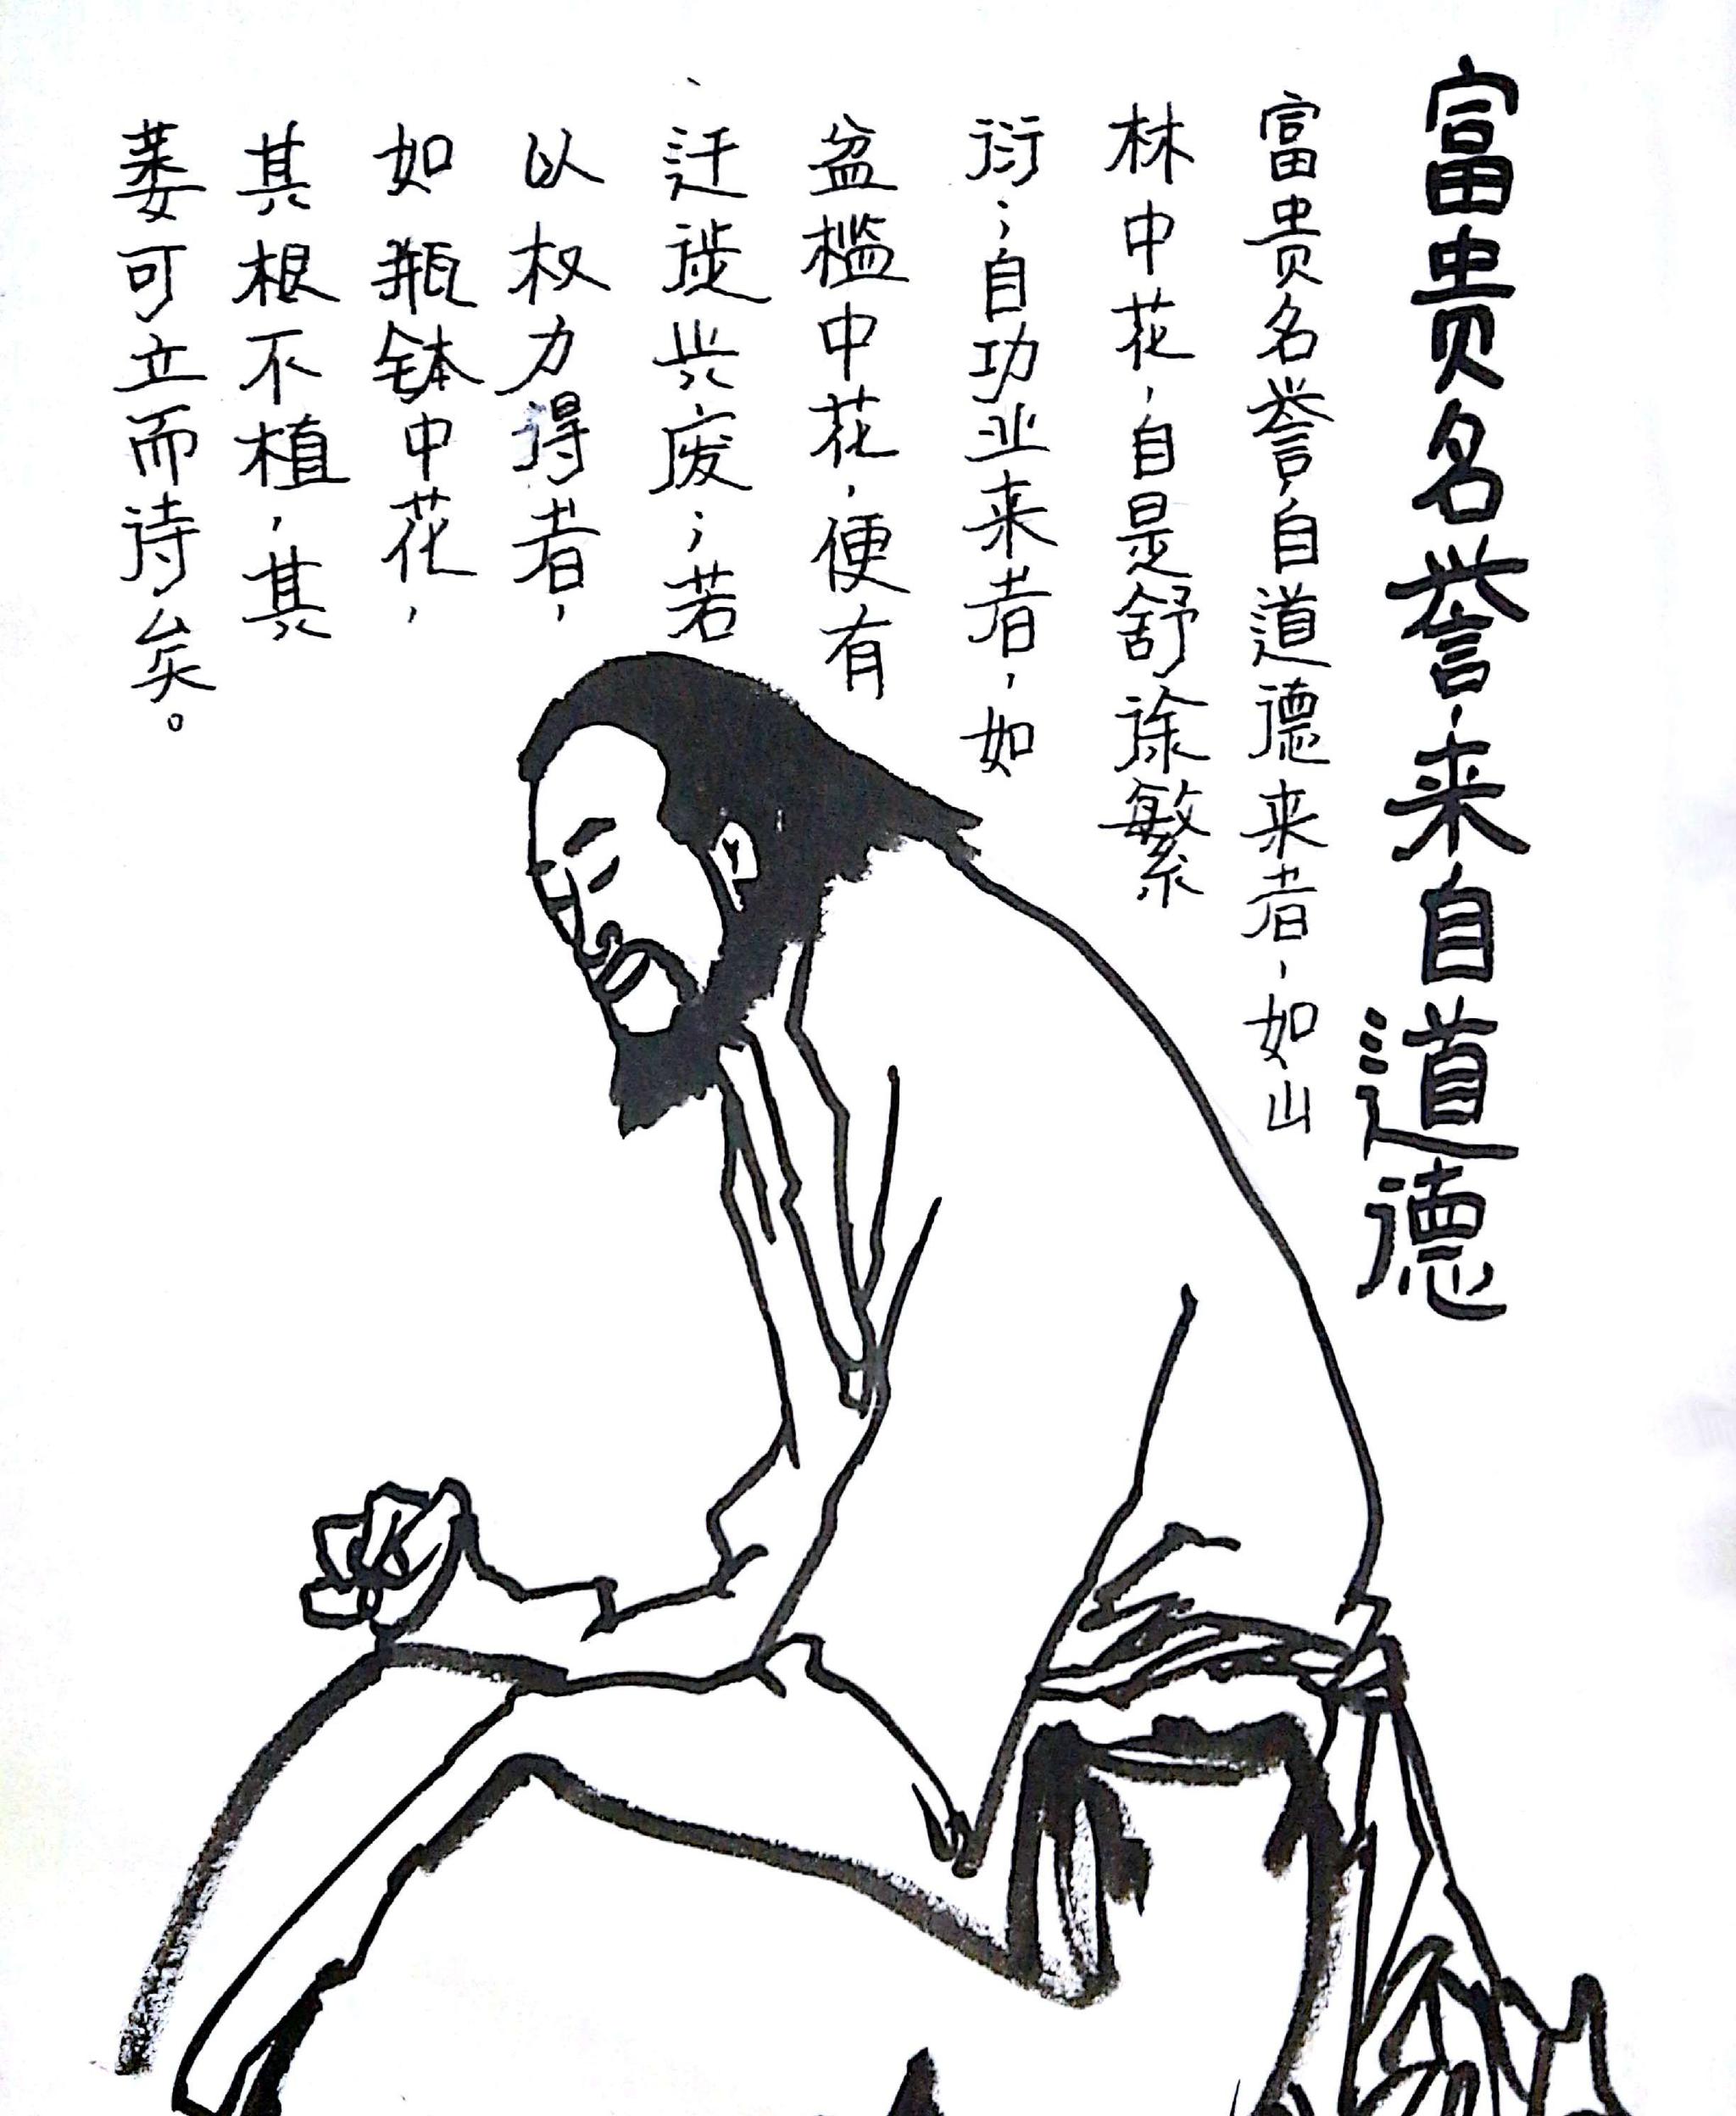 富贵名誉，来自道德
富贵名誉，自道德来者，如山
林中花，自是舒徐繁
衍；自功业来者，如
盆槛中花，便有
迁徙兴废；若
以权力得者，
如瓶钵中花，
其根不植，其
萎可立而待矣。